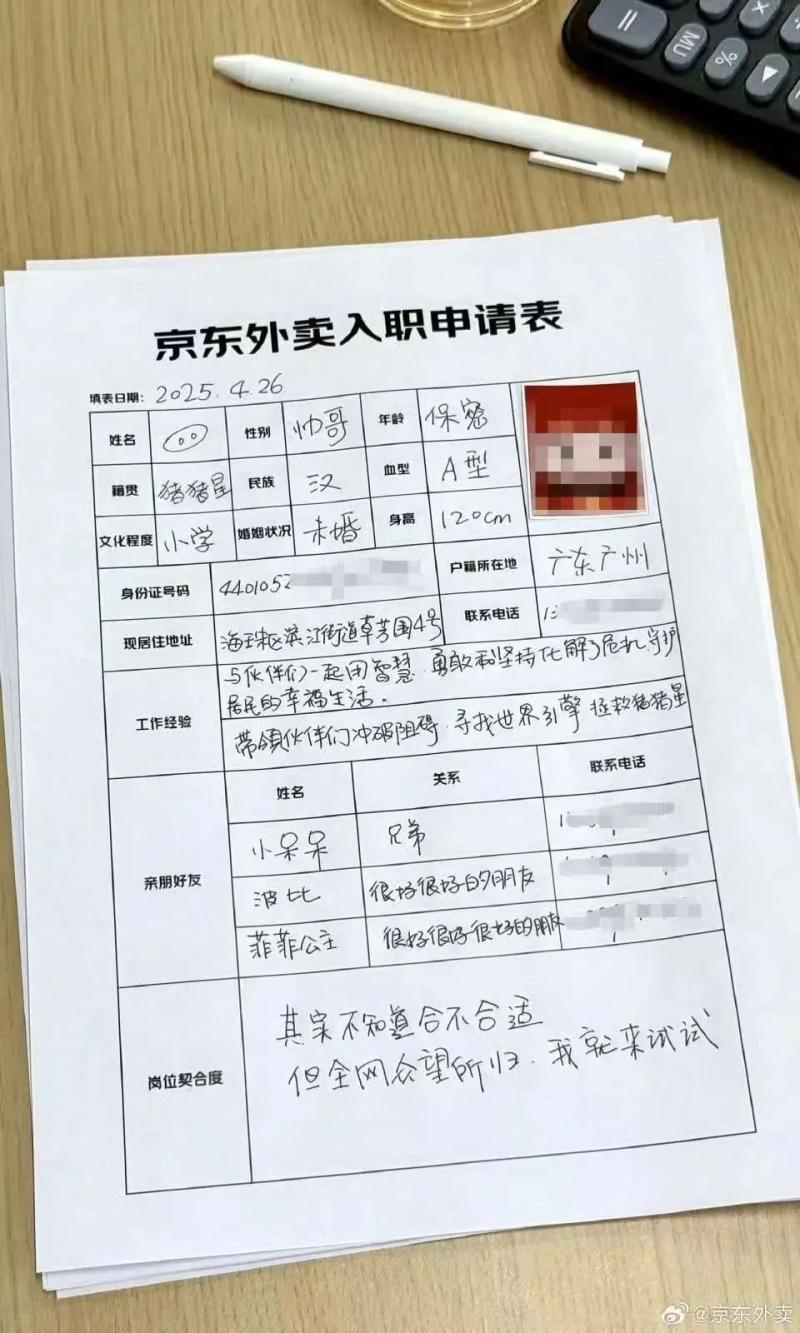 京东外卖入职申请表
填表日期: 2025.4.26
姓名 性别 帅哥 年龄 保密
籍贯 猪猪星 民族 汉 血型 A型
文化程度 小学 婚姻状况 未婚 身高 120cm
身份证号码 4401052 户籍所在地 广东广州
现居住地址 海珠区滨江街道草芳围4号 联系电话 1
工作经验
与伙伴们一起用智慧、勇敢和坚持化解了危机,守护
居民的幸福生活.
带领伙伴们冲破阻碍、寻找世界引擎 拯救猪猪星
亲朋好友
姓名 关系 联系电话
小呆呆 兄弟 1
波比 很好很好的朋友 1
菲菲公主 很好很好很好的朋友 1
岗位契合度
其实不知道合不合适
但全网众望所归、我就来试试
= MU % ▼ ×
@京东外卖